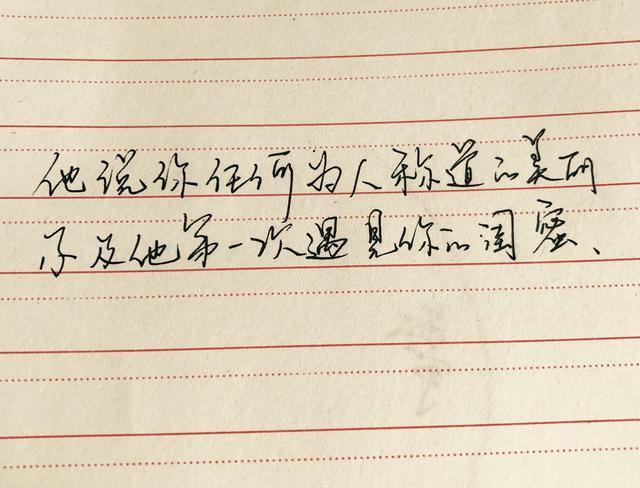 他说你任何为人称道的美丽
不及他第一次遇见你的闺蜜、